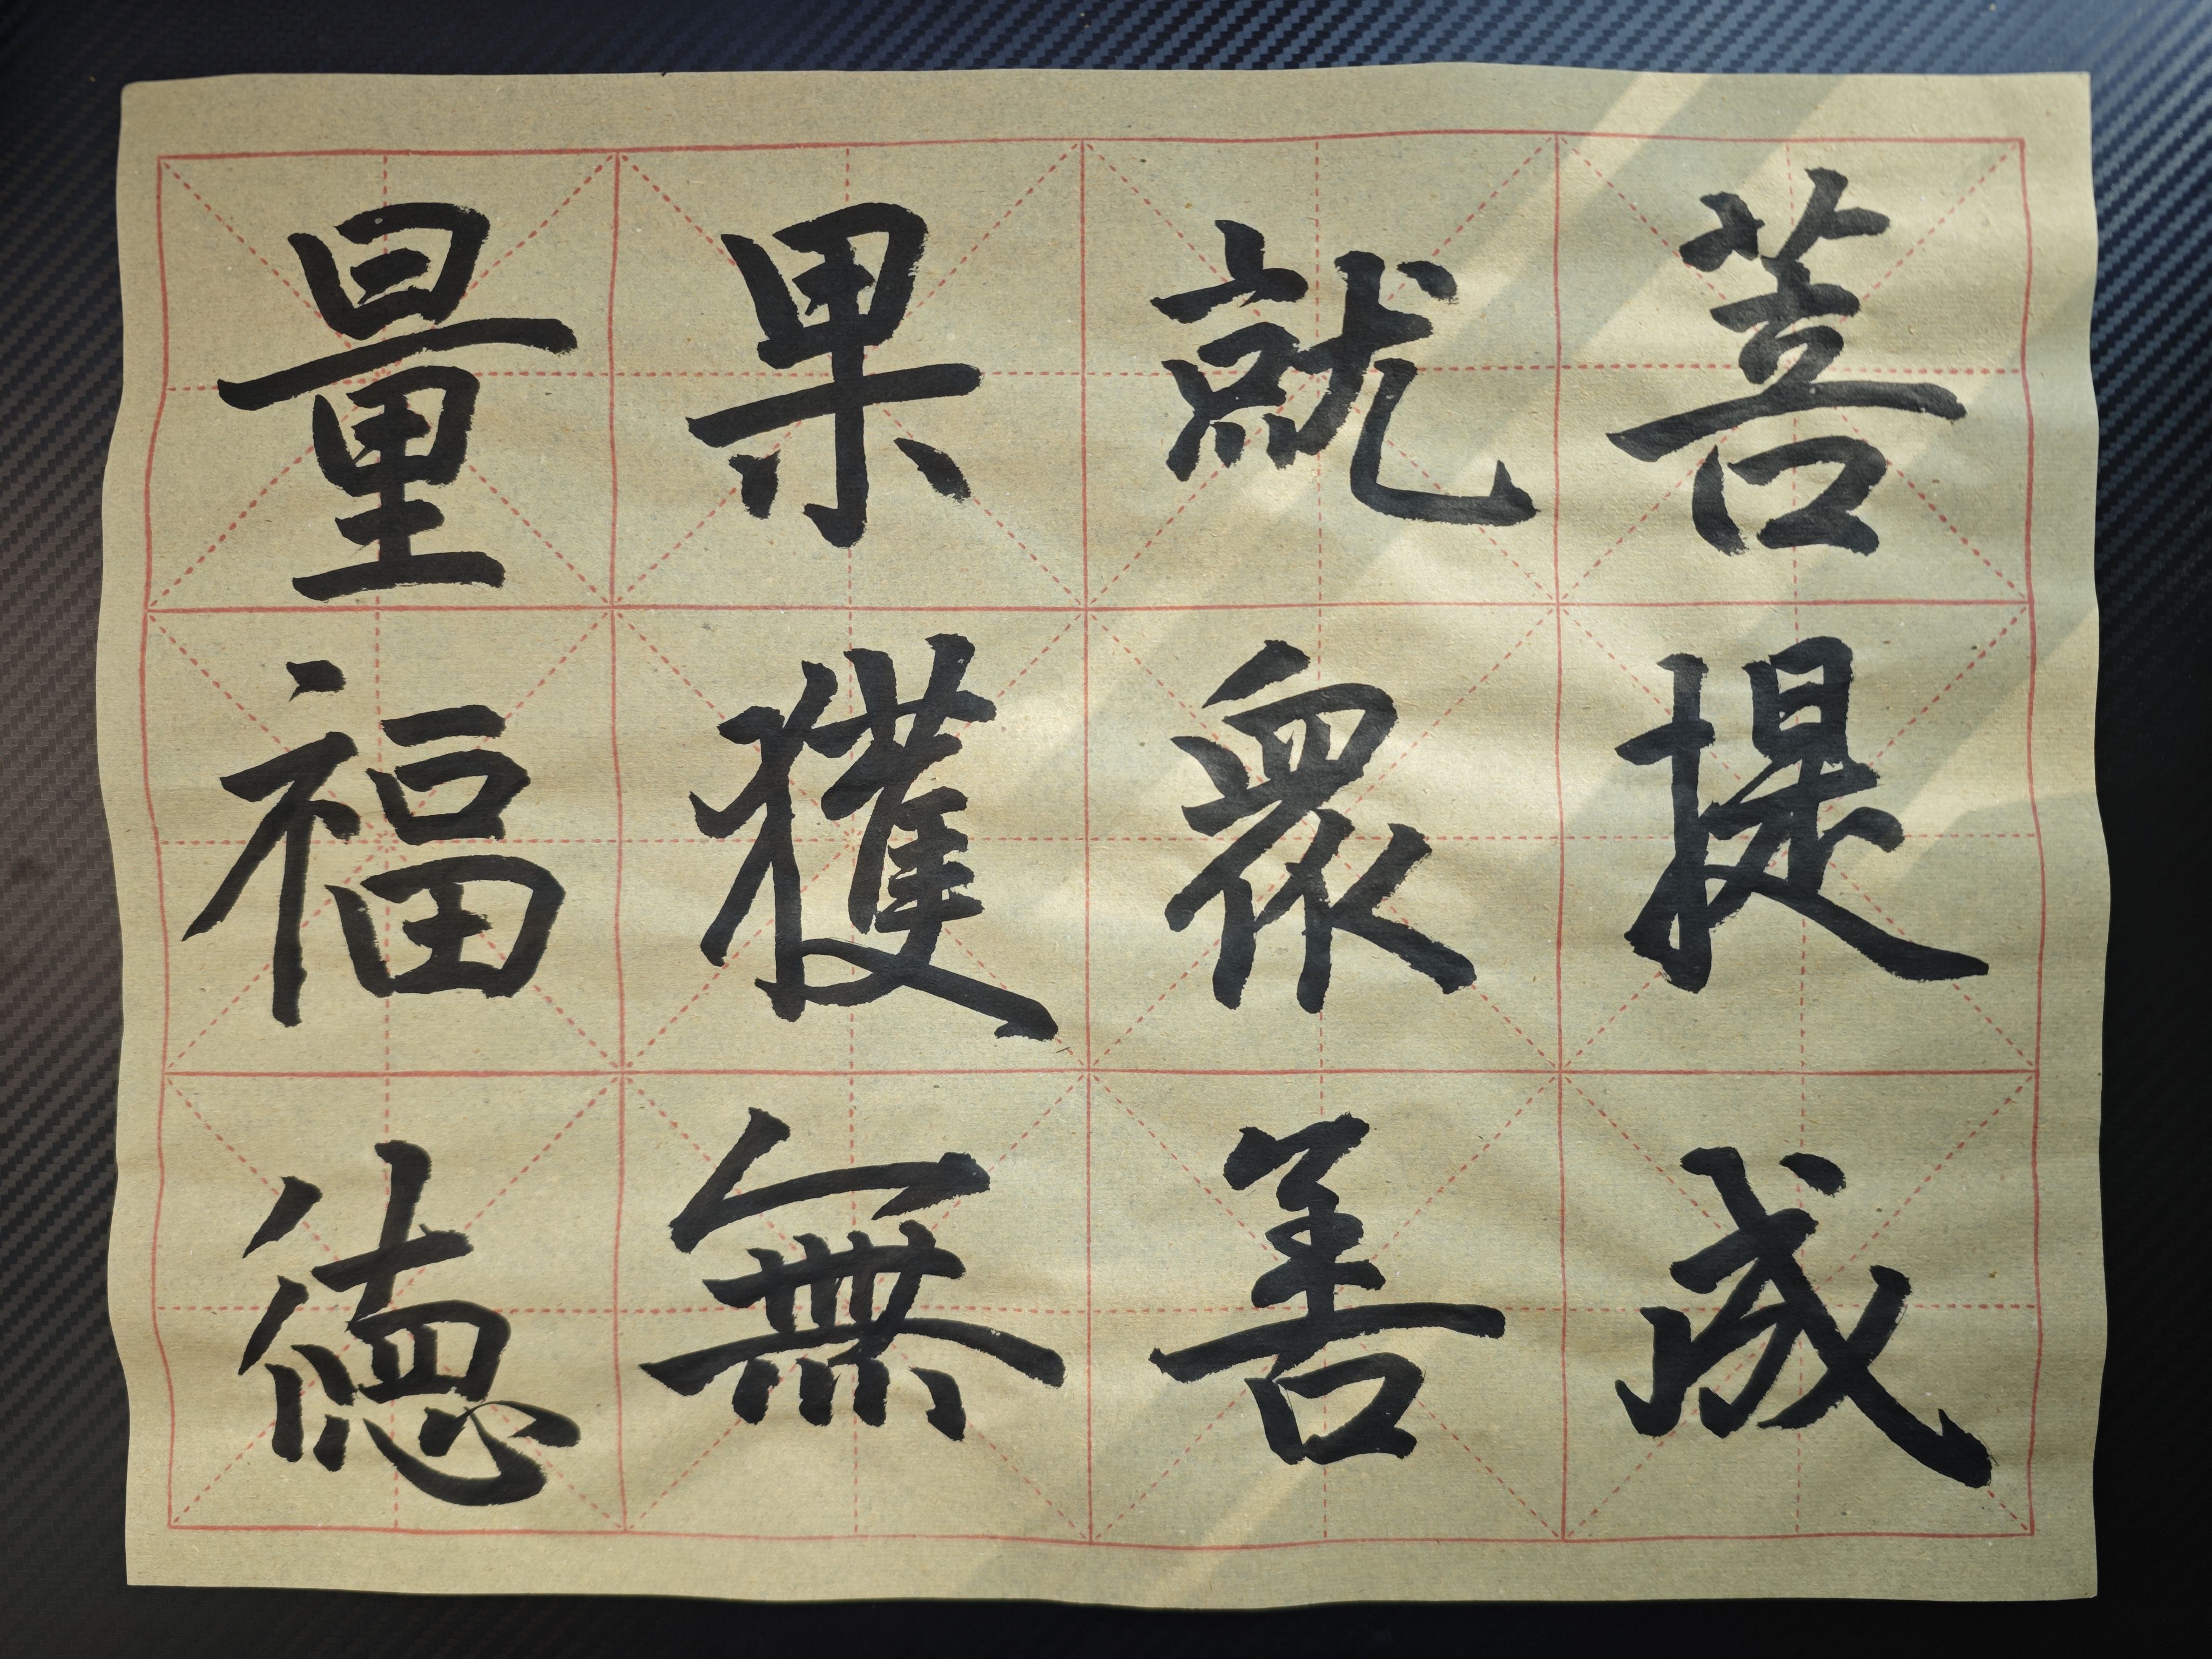 菩提成
就衆善
果獲無
量福德